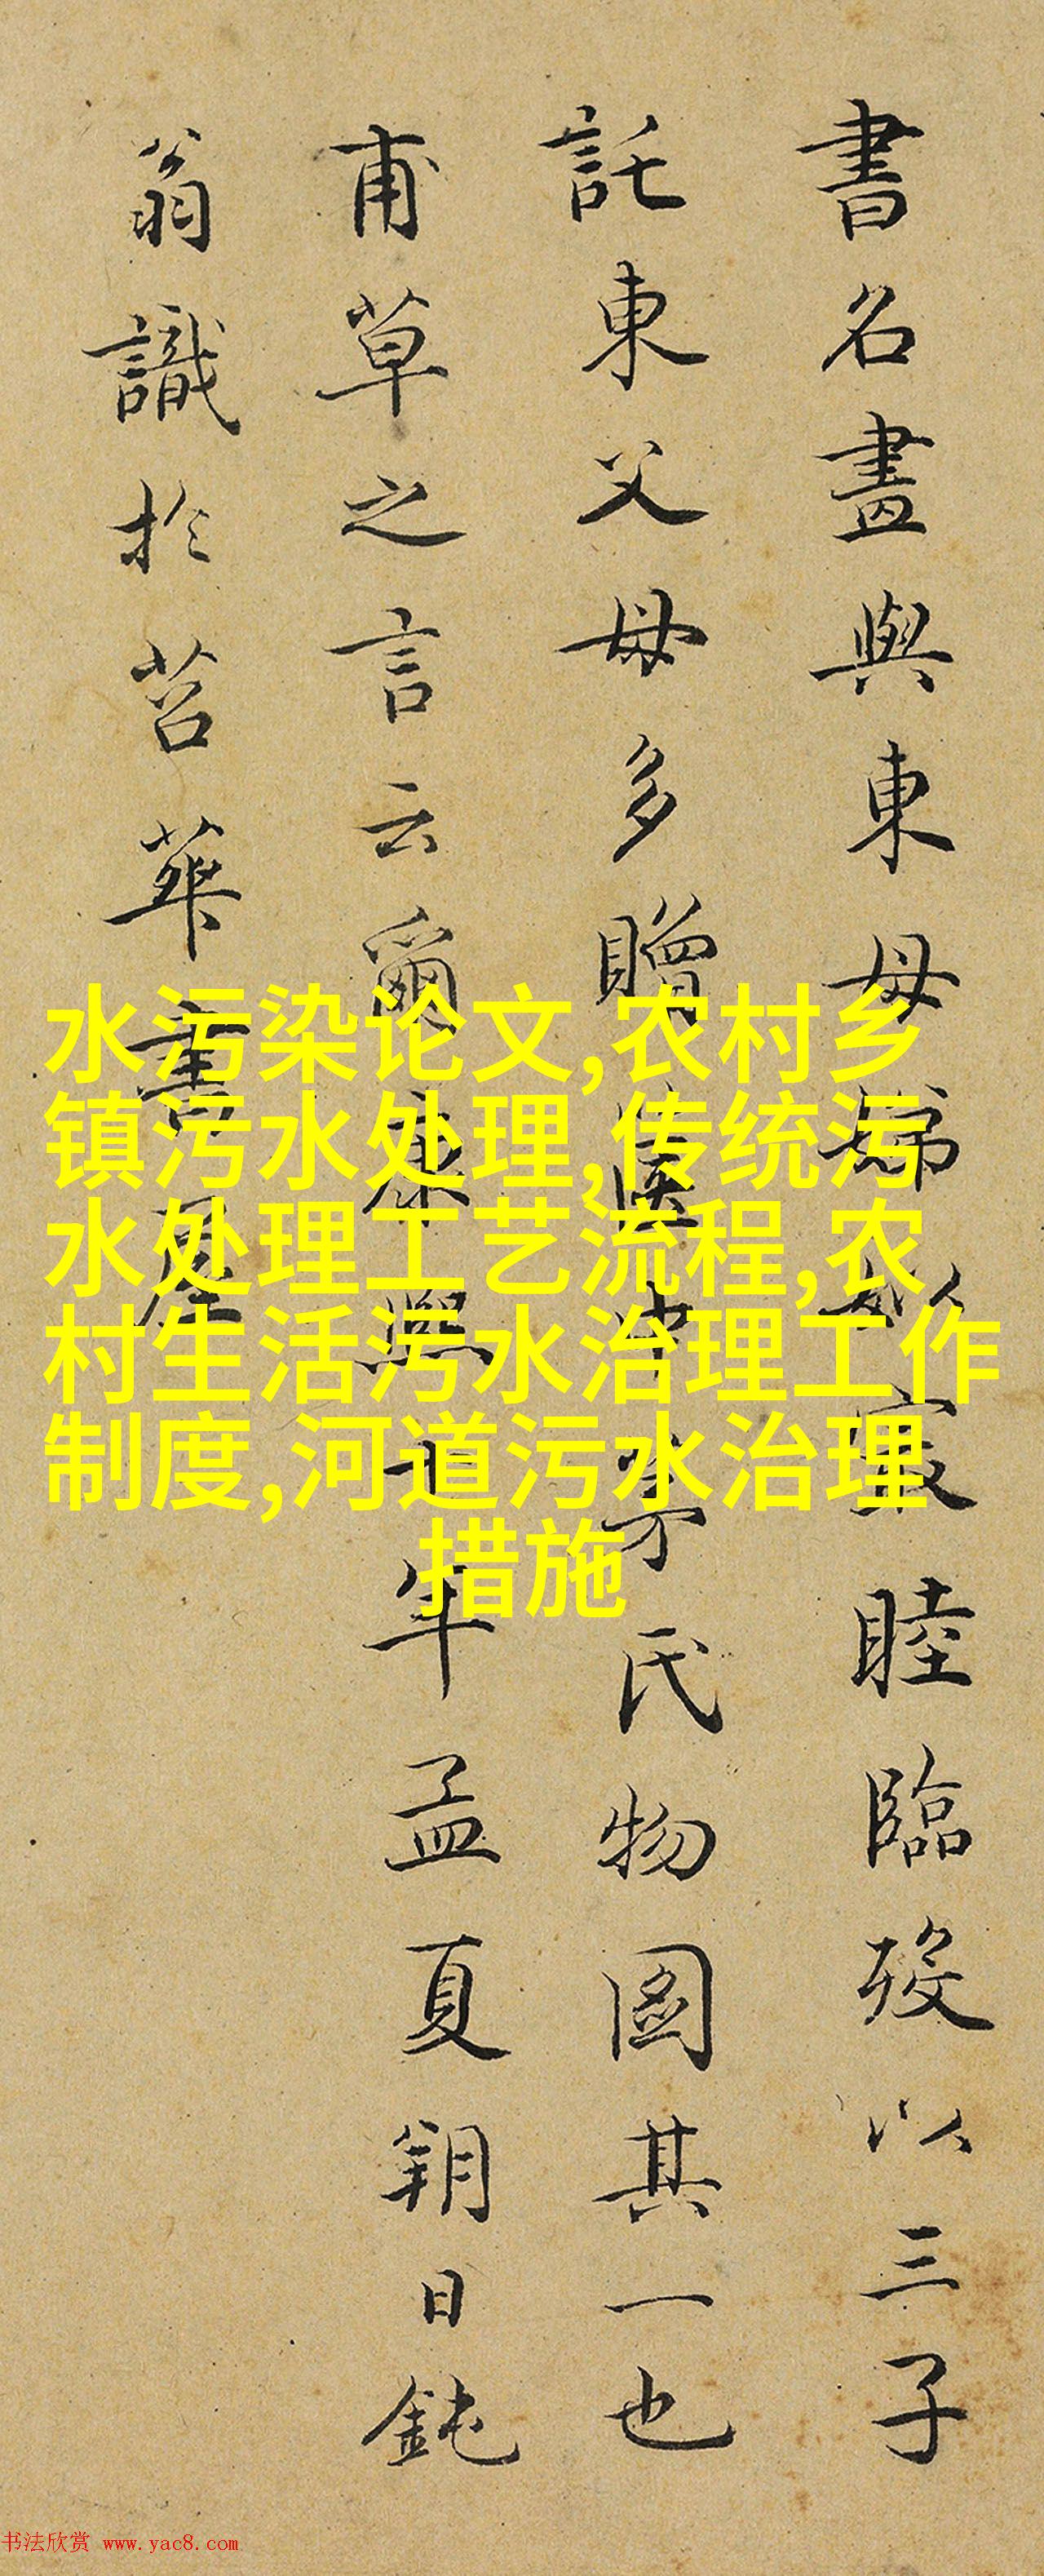 書名畫與東母婦㝡睦臨歿以三子
託東父母多贈醫中予氏物圖其一也
甫草之言云爾康熙廿年孟夏朔日鈍
翁識於苕華書屋
水污染论文,农村乡
镇污水处理,传统污
水处理工艺流程,农
村生活污水治理工作
制度,河道污水治理
措施
书法欣赏 www.yac8.com